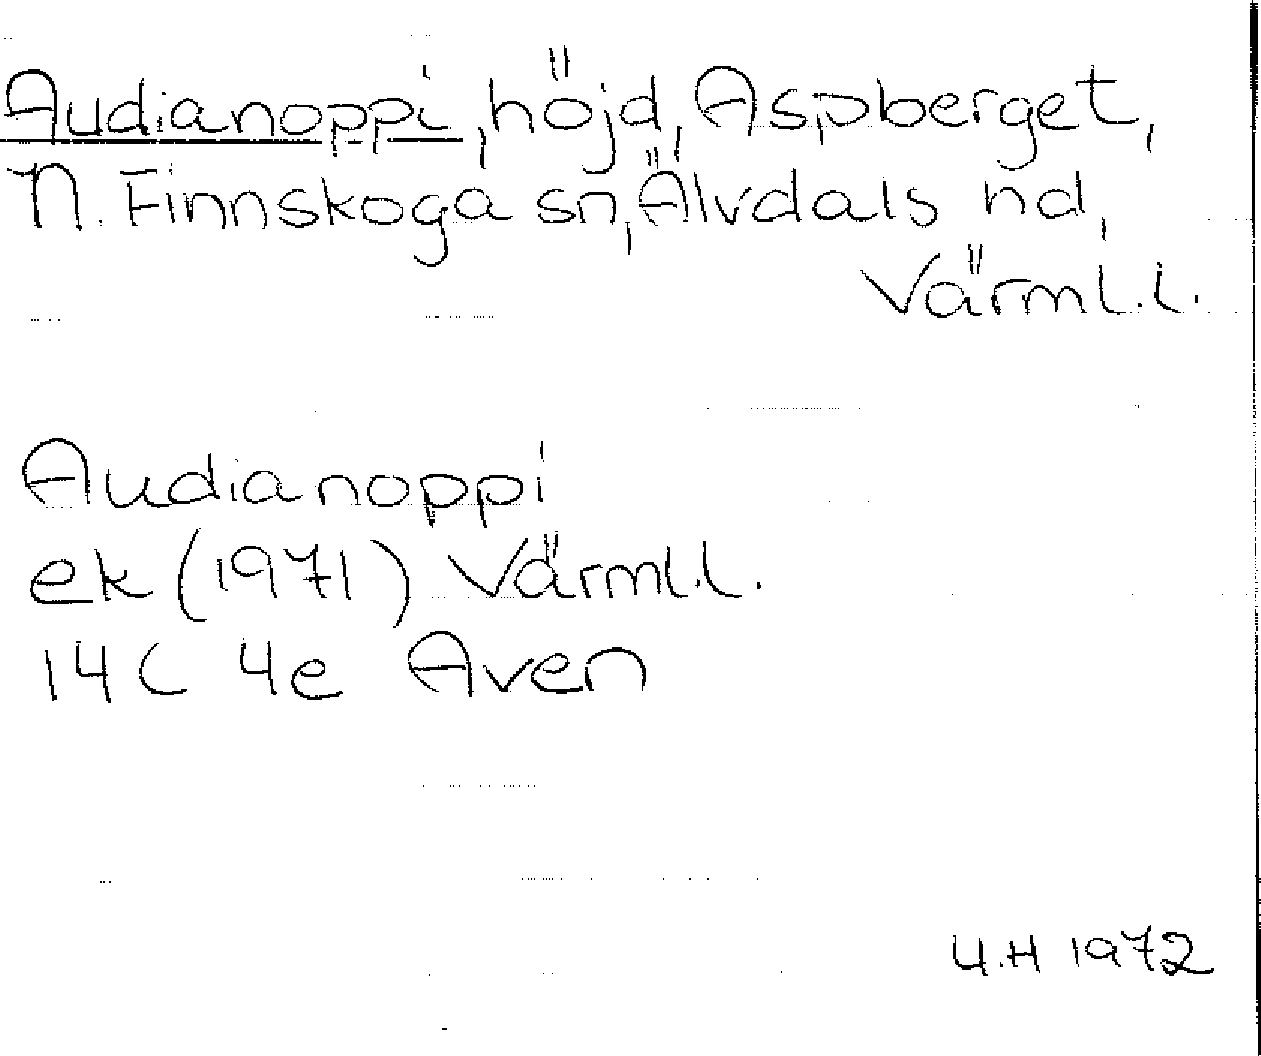 Audianoppi, höjd, Aspberget,
N. Finnskoga sn, Älvdals hd,
Värml.l.
Audianoppi
ek (1971) Värml.l.
14C 4e Aven
U.H 1972